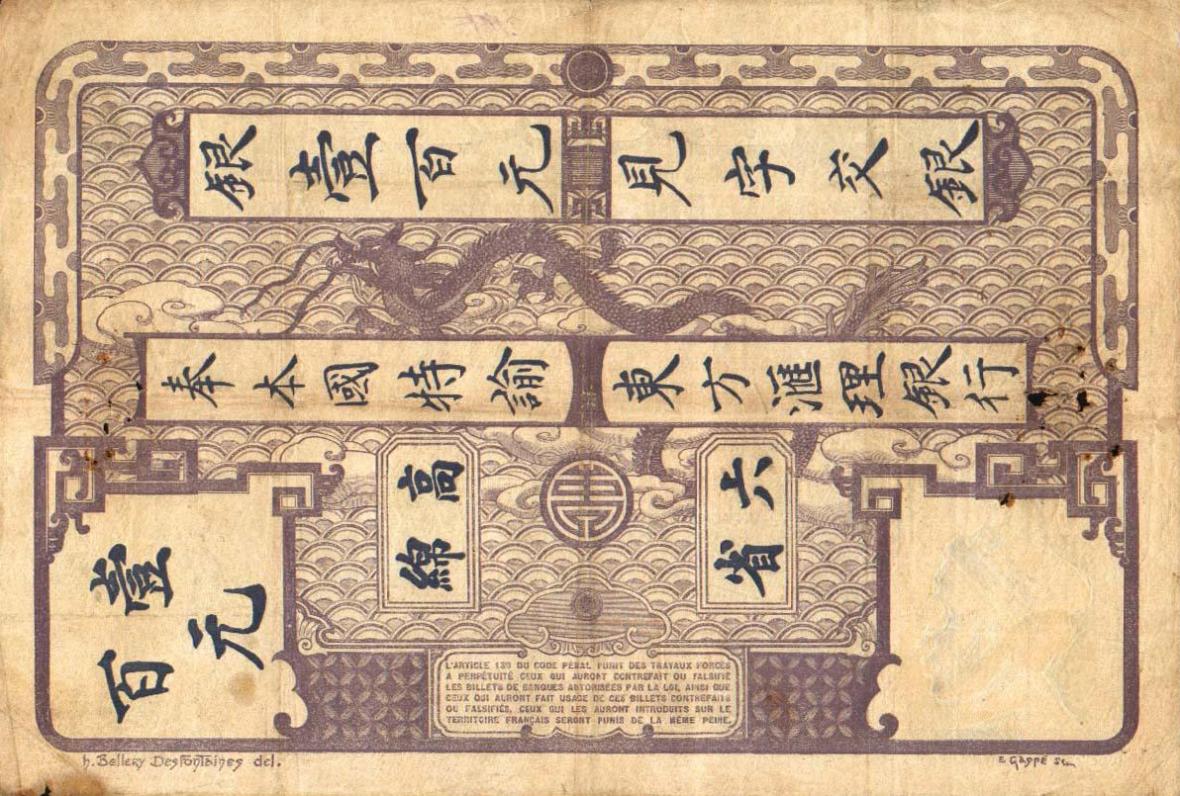 銀壹百元
見字交銀
奉本國特諭
東方滙理銀行
高綿
六省
壹百元
L'ARTICLE 139 DU CODE PÉNAL PUNIT DES TRAVAUX FORCÉS
A PERPÉTUITÉ CEUX QUI AURONT CONTREFAIT OU FALSIFIÉ
LES BILLETS DE BANQUES AUTORISÉES PAR LA LOI, AINSI QUE
CEUX QUI AURONT FAIT USAGE DE CES BILLETS CONTREFAITS
OU FALSIFIÉS. CEUX QUI LES AURONT INTRODUITS SUR LE
TERRITOIRE FRANÇAIS SERONT PUNIS DE LA MÊME PEINE.
h. Bellery Desfontaines del.